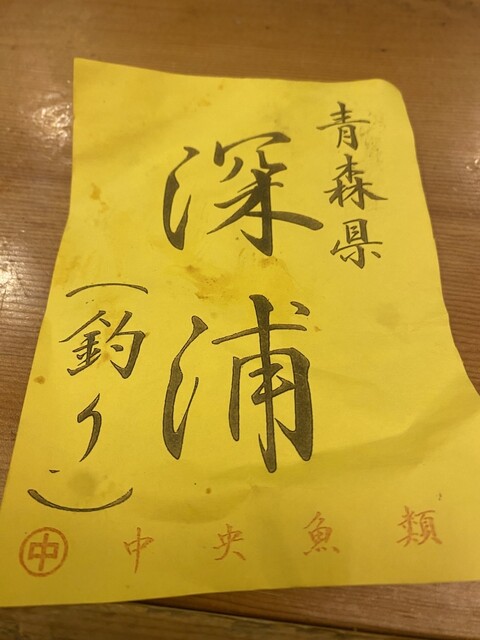 青森県
深浦
（釣り）
中 中央魚類